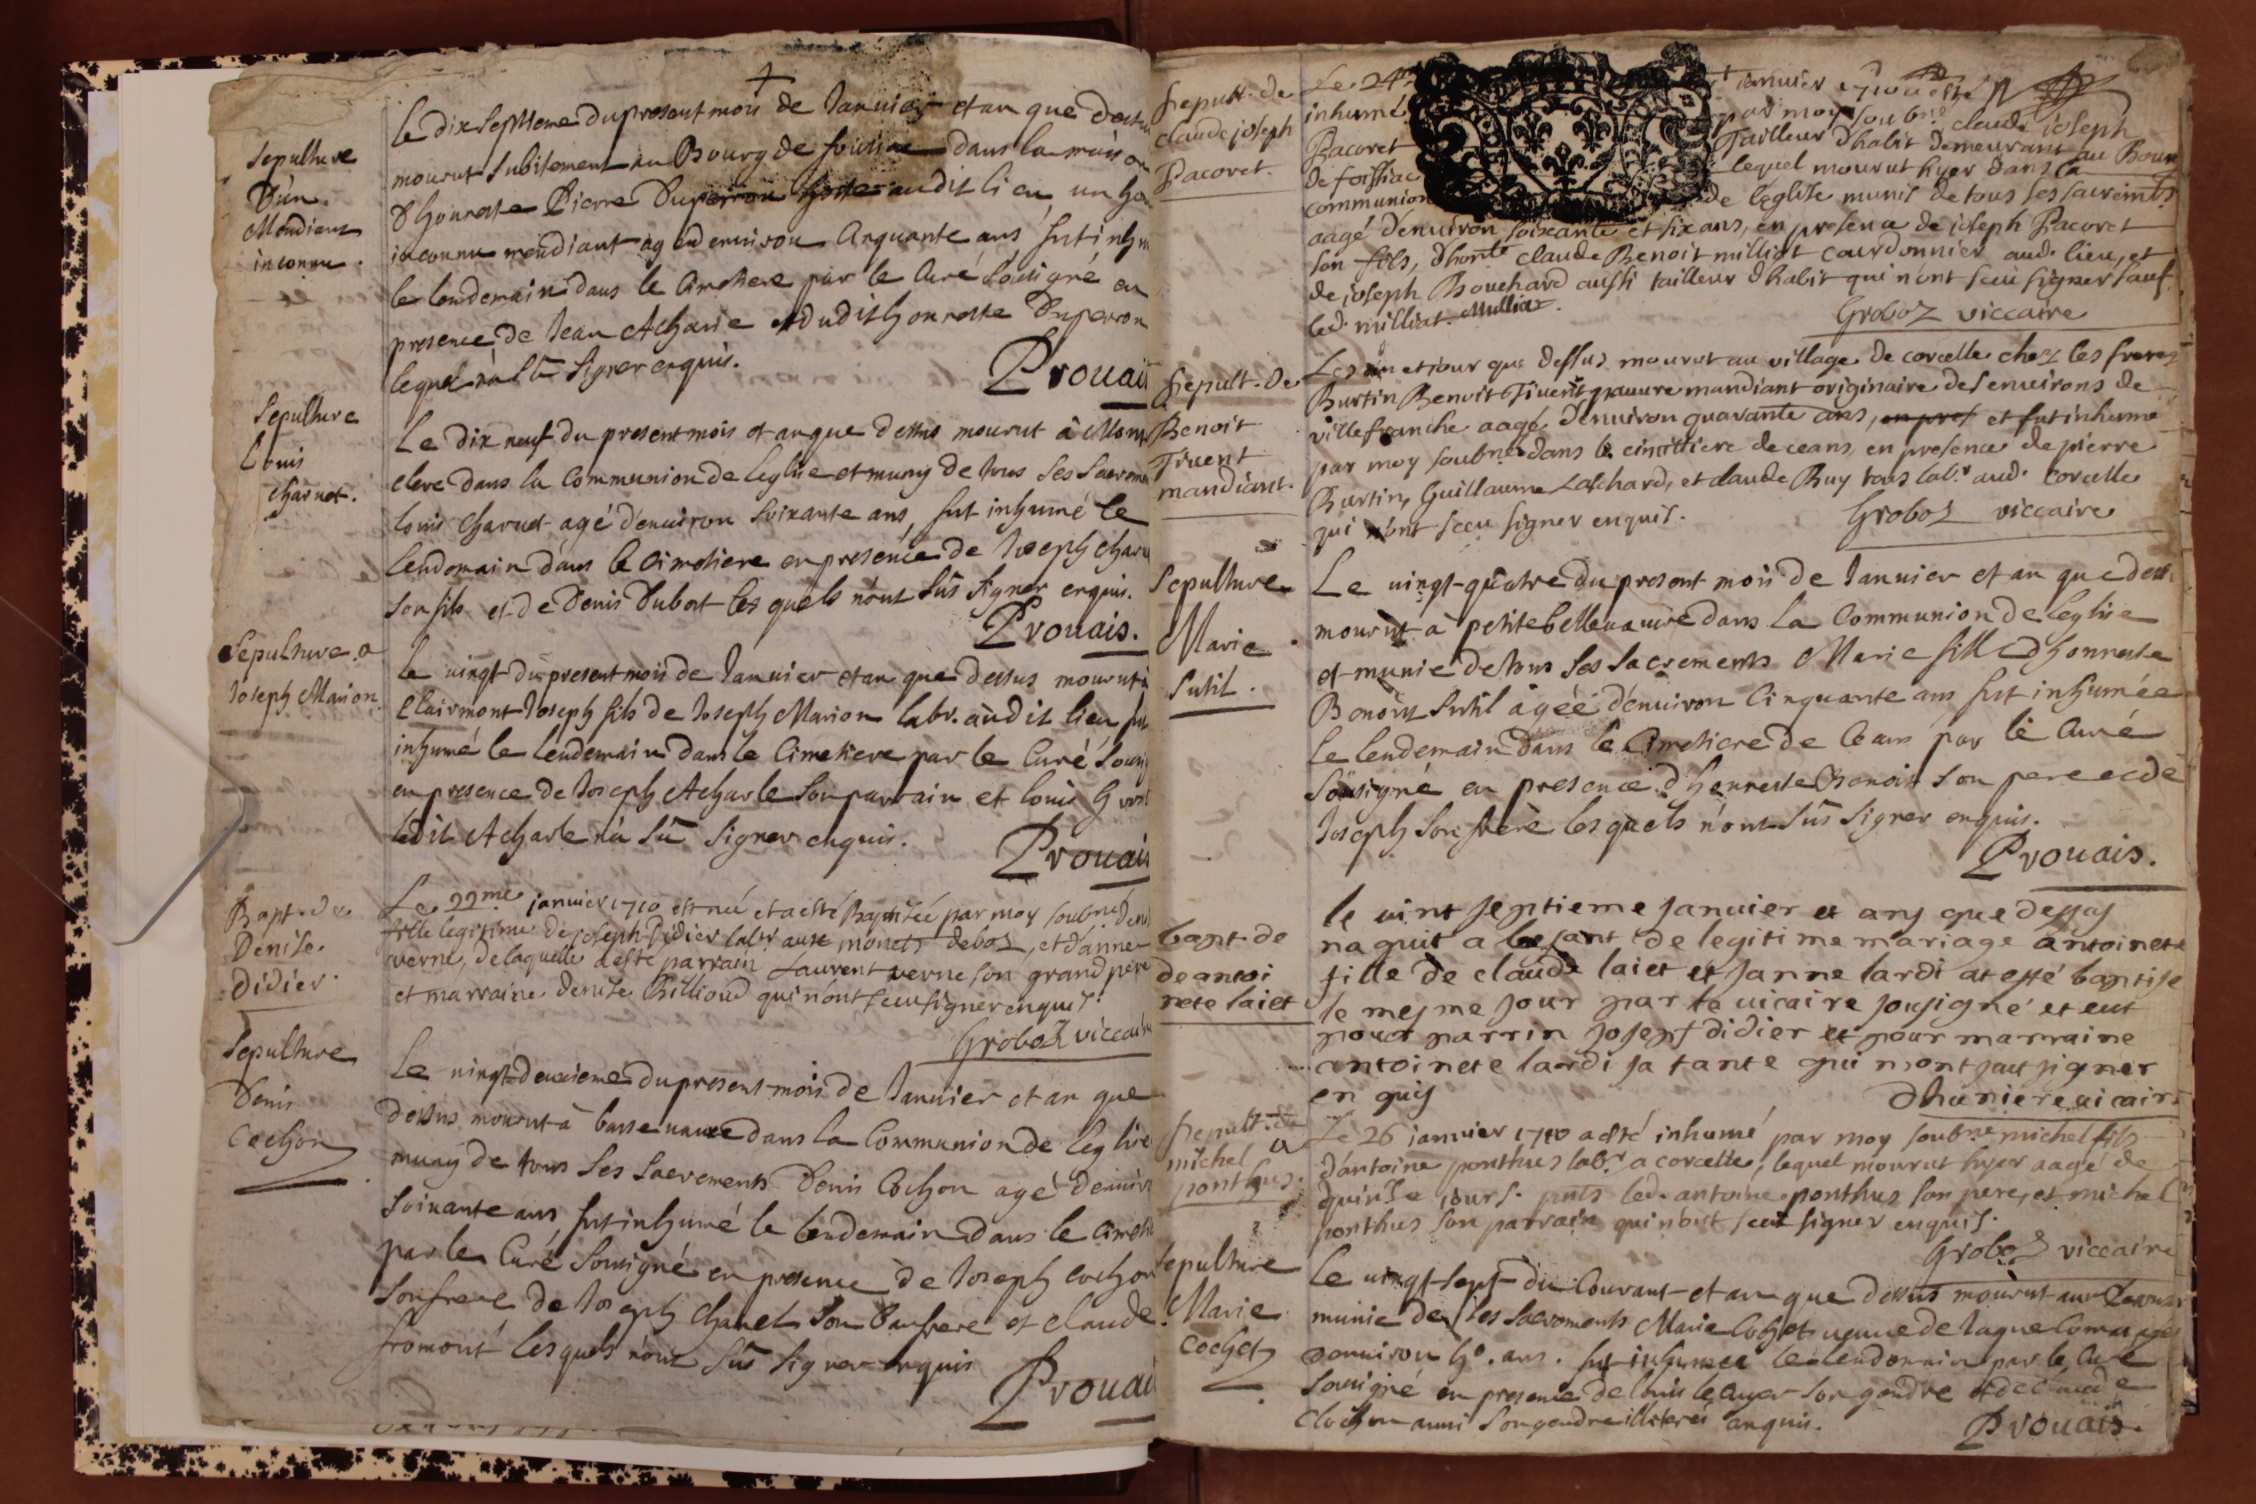 Sepulture
D'un
Mendiant
inconnu.
le dix septieme du present mois de Janvier et an que dessus
mourut subitement au Bourg de foissiac dans la maison
d'honneste Pierre Duperron hoste audit lieu un
inconnu mendiant agé d'environ Cinquante ans fut
le lendemain dans le Cimetiere par le Curé Sousigné en
presence de Jean Acharle et dudit honneste Duperron
lequel n'a sû signer enquis.
Prouais
Sepulture
Louis
Charnet.
Le dix neuf du present mois et an que dessus mourut à
dans la Communion de leglise et muny de tous ses
Louis Charnet agé d'environ soixante ans, fut inhumé le
lendemain dans le cimetiere en presence de Joseph
son fils et de Denis Dubost lesquels n'ont sûs signer enquis.
Prouais.
Sepulture
Joseph Marion
le vingt du present mois de Janvier et an que dessus mourut à
Clairmont Joseph fils de Joseph Marion labr. audit lieu
inhumé le lendemain dans le Cimetiere par le Curé
en presence de Joseph Acharle son parrain et louis
ledit Acharle n'a sû signer enquis.
Prouais
Bapt. de
Denise
Didier.
Le 22me janvier 1710 est née et a esté Baptisée par moy soubne
fille legitime de joseph Didier labr aux monets de bos, et d'anne
verne, de laquelle a esté parrain Laurent verne son grand pere
et marraine denise Billioud qui n'ont sceu signer enquis.
Groboz viccaire
Sepulture
Denis
Cochon
Le vingt-deuxieme du present mois de Janvier et an que
dessus mourut à basse dans la Communion de leglise
muny de tous ses sacrements Denis Cochon agé
soixante ans fut inhumé le lendemain dans le
par le Curé Sousigné en presence de Joseph cochon
son frere de Joseph Chanel son Beaufrere et Claude
fromont lesquels n'ont sûs signer enquis
Prouais
sepult. de
claude joseph
Pacoret.
Le 24e janvier 1710 a esté
inhumé par moy soubne claude joseph
Pacoret Tailleur d'habit demeurant au Bourg
de foissiac lequel mourut hyer dans la
communion de l'eglise munit de tous ses sacremts
aagé denviron soixante et six ans, en presence de joseph Pacoret
son fils, d'honte claude Benoit milliat courdonnier aud. lieu, et
de joseph Bouchard aussi tailleur d'habit qui n'ont sceu signer sauf
led. milliat. Milliat.
Groboz viccaire
sepult. de
Benoit
Tivent
mandiant.
Les an et jour que dessus mourut au village de corcelle chez les freres
Burtin Benoit Tivent pauvre mandiant originaire des environs de
villefranche aagé d'environ quarante ans, en pres et fut inhumé
par moy soubne dans le cimittiere de ceans, en presence de pierre
Burtin, Guillaume Lachard, et claude Buy tous labr. aud. Corcelle
qui n'ont sceu signer enquis.
Groboz viccaire
Sepulture
Marie
Sutil.
Le vingt-quatre du present mois de Janvier et an que
mourut à petite bellevavre dans la Communion de leglise
et munie de tous ses sacrements Marie fille d'honneste
Benoit Sutil agée d'environ Cinquante ans fut inhumée
le lendemain dans le Cimetiere de Ceans par le Curé
Sousigné en presence d'honneste Benoit son pere et de
Joseph son frere lesquels n'ont sûs signer enquis.
Prouais.
bapt de
de antoi
nete laiet
le vint septieme janvier et ans que dessus
naquit a de legitime mariage antoinete
fille de claude laiet et janne lardi at esté baptise
le mesme jour par le vicaire sousigné et eut
pour parrin josept didier et pour marraine
antoinete lardi sa tante qui n'ont saut signer
en quis
dhuniere vicaire
sepult. de
michel
ponthus.
Le 26 janvier 1710 a esté inhumé par moy soubne michel fils
d'antoine ponthus labr a corcelle, lequel mourut hyer aagé de
quinse jours. pnts led. antoine ponthus son pere, et michel
ponthus son parrain qui n'ont sceu signer enquis.
Groboz viccaire
Sepulture
Marie
Cochet
le vingt-sept du Courant et an que dessus mourut aux
munie de ses sacrements Marie Cochet veuve de
denviron 60. ans. fut inhumée le lendemain par le Curé
Sousigné en presence de louis son gendre et de Claude
Cochon aussi son gendre illiterés enquis.
Prouais.